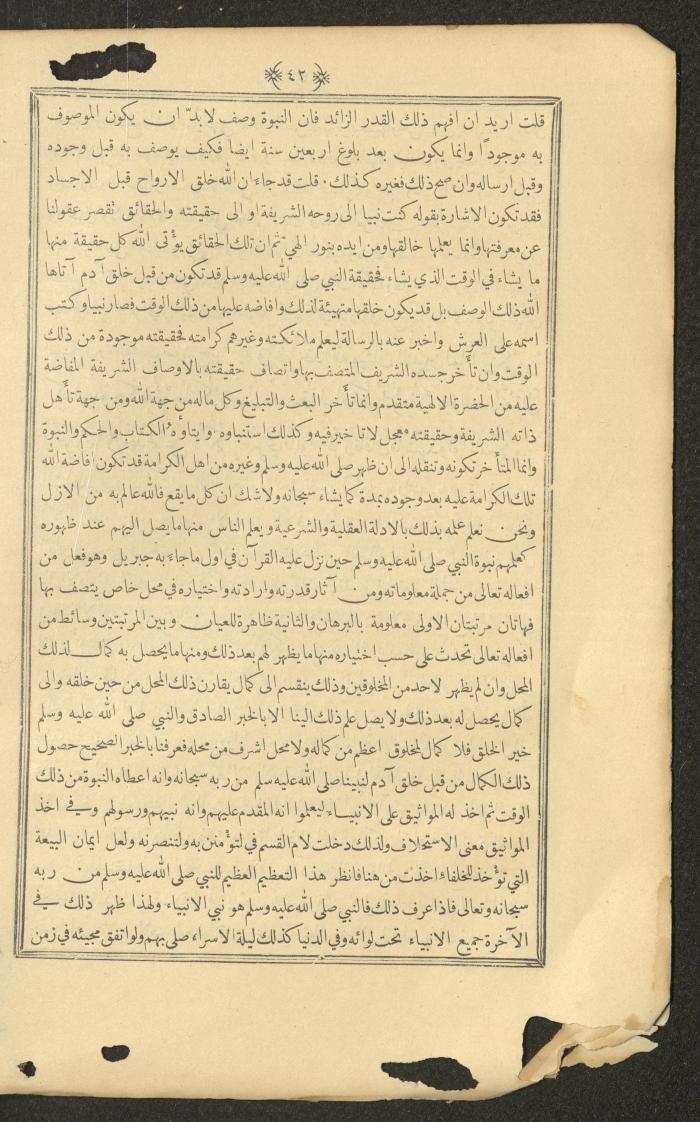 ﴿ ٤٢ ﴾
قلت اريد ان افهم ذلك القدر الزائد فان النبوة وصف لابدّ ان يكون الموصوف
به موجودًا وانما يكون بعد بلوغ اربعين سنة ايضا فكيف يوصف به قبل وجوده
وقبل ارساله وان صح ذلك فغيره كذلك . قلت قد جاء ان الله خلق الارواح قبل الاجساد
فقد تكون الاشارة بقوله كنت نبيا الى روحه الشريفة او الى حقيقته والحقائق تقصر عقولنا
عن معرفتها وانما يعلمها خالقها ومن ايده بنور الهيّ ثم ان تلك الحقائق يؤتى الله كل حقيقة منها
ما يشاء في الوقت الذي يشاء فحقيقة النبي صلى الله عليه وسلم قد تكون من قبل خلق آدم آتاها
الله ذلك الوصف بل قد يكون خلقها متهيئة لذلك وافاضه عليها من ذلك الوقت فصار نبيا وكتب
اسمه على العرش واخبر عنه بالرسالة ليعلم ملائكته وغيرهم كرامته فحقيقته موجودة من ذلك
الوقت وان تأخر جسده الشريف المتصف بها واتصاف حقيقته بالاوصاف الشريفة المفاضة
عليه من الحضرة الالهية متقدم وانما تأخر البعث والتبليغ وكل ماله من جهة الله ومن جهة تأهل
ذاته الشريفة وحقيقته معجل لا تاخير فيه وكذلك استنباوه وايتاؤه الكتاب والحكم والنبوة
وانما المتأخر تكونه وتنقله الى ان ظهر صلى الله عليه وسلم وغيره من اهل الكرامة قد تكون افاضة الله
تلك الكرامة عليه بعد وجوده بمدة كما يشاء سبحانه ولا شك ان كل ما يقع فالله عالم به من الازل
ونحن نعلم علمه بذلك بالادلة العقلية والشرعية ويعلم الناس منها ما يصل اليهم عند ظهوره
كعلمهم نبوة النبي صلى الله عليه وسلم حين نزل عليه القرآن في اول ما جاء به جبريل وهو فعل من
افعاله تعالى من جملة معلوماته ومن آثار قدرته وارادته واختياره في محل خاص يتصف بها
فهاتان مرتبتان الاولى معلومة بالبرهان والثانية ظاهرة للعيان وبين المرتبتين وسائط من
افعاله تعالى تحدث على حسب اختياره منها ما يظهر لهم بعد ذلك ومنها ما يحصل به كمال لذلك
المحل وان لم يظهر لاحد من المخلوقين وذلك ينقسم الى كمال يقارن ذلك المحل من حين خلقه والى
كمال يحصل له بعد ذلك ولا يصل علم ذلك الينا الا بالخبر الصادق والنبي صلى الله عليه وسلم
خير الخلق فلا كمال لمخلوق اعظم من كماله ولا محل اشرف من محله فعرفنا بالخبر الصحيح حصول
ذلك الكمال من قبل خلق آدم لنبينا صلى الله عليه وسلم من ربه سبحانه وانه اعطاه النبوة من ذلك
الوقت ثم اخذ له المواثيق على الانبياء ليعلموا انه المقدم عليهم وانه نبيهم ورسولهم وفي اخذ
المواثيق معنى الاستحلاف ولذلك دخلت لام القسم في لتؤمنن به ولتنصرنه ولعل ايمان البيعة
التي تؤخذ للخلفاء اخذت من هنا فانظر هذا التعظيم العظيم للنبي صلى الله عليه وسلم من ربه
سبحانه وتعالى فاذا عرف ذلك فالنبي صلى الله عليه وسلم هو نبي الانبياء ولهذا ظهر ذلك في
الآخرة جميع الانبياء تحت لوائه وفي الدنيا كذلك ليلة الاسراء صلى بهم ولو اتفق مجيئه في زمن